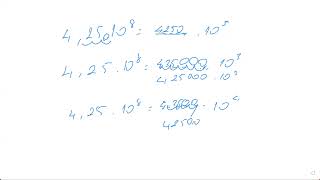 4,25·10⁸ = 4250 · 10⁵
4,25 · 10⁸ = · 10³
4,25000 · 10³
4,25 · 10⁸ = · 10⁴
42500